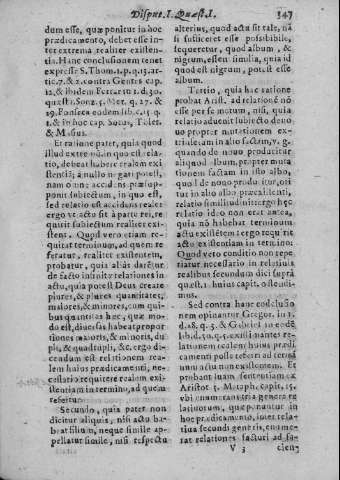 Disput. I. Quæst. I. 347
dum esse, quæ ponitur in hoc
prædicamento, debet esse in-
ter extrema realiter existen-
tia. Hanc conclusionem tenet
expresse S. Thom. 1. p. q. 13. ar-
tic. 7. & 2. contra Gentes cap.
12. & ibidem Ferrar.
quæst. Sonz. 5. Met. q. 27. &
29. Fonseca eodem lib. c. 15. q.
1. & in hoc cap. Sotus, Tolet.
& Masius.
Et ratione patet, quia quod
illud extremum quo est rela-
tio, debeat habere realem exi-
stentiã; à nullo negari potest,
nam omne accidens præsup-
ponit subiectum, in quo est,
sed relatio est accidens reale:
ergo ut actu sit à parte rei, re-
quirit subiectum realiter exi-
stens. Quod vero etiam re-
quirat terminum, ad quem re
feratur, realiter existentem,
probatur, quia aliàs darẽtur
de facto infinitæ relationes in
actu, quia potest Deus creare
plures, & plures quantitates,
maiores, & minores, cum qui-
bus quantitas hæc, quæ mo-
do est, diversas habeat propor
tiones maioris, & minoris, du
pli, & quadrupli, &c. ergo di-
cendum est relationem rea-
lem huius prædicamenti, ne-
cessario requirere realem exi-
stentiam in termino, ad quem
refertur.
Secundo, quia pater non
dicitur aliquis, nisi actu ha-
beat filium, neque simile ap-
pellatur simile, nisi respectu
alterius, quod actu sit tale, nã
si sufficeret esse possibile,
sequeretur, quod album, &
nigrum, essent similia, quia id
quod est nigrum, potest esse
album.
Tertio, quia hac ratione
probat Arist. ad relationẽ nõ
esse per se motum, nisi, quia
relatio advenit subiecto de no-
vo propter mutationem ex-
trinsecam in alio factam, v. g.
quando de novo producitur
aliquod album, propter muta
tionem factam in isto albo,
quod de novo producitur, ori
tur in alio albo præexistenti,
relatio similitudinis: ergo hęc
relatio ideo non erat antea,
quia nõ habebat terminum
actu existẽtem: ergo requirit
actu existentiam in termino:
Quod vero conditio non repe
riatur necessario in relativis
realibus secundum dici supra
quæst. 1. huius capit. ostendi-
mus.
Sed contra hanc coclusio
nem opinantur Gregor. in 1.
d. 28. q. 3. & Gabriel in eodẽ
lib. d. 30. q. 5. existimantes re-
lationem realem huius prædi
camenti posse referri ad termi
num actu non existentem. Et
probant suam sententiam ex
Aristot. 5. Metaph. capit. 15.
ubi enumerat tria genera re
lativorum, quæ ponuntur in
hoc prædicamento, inter rela
tiva secundi generis, enume-
rat relationes facturi ad fa-
V 3 cien-